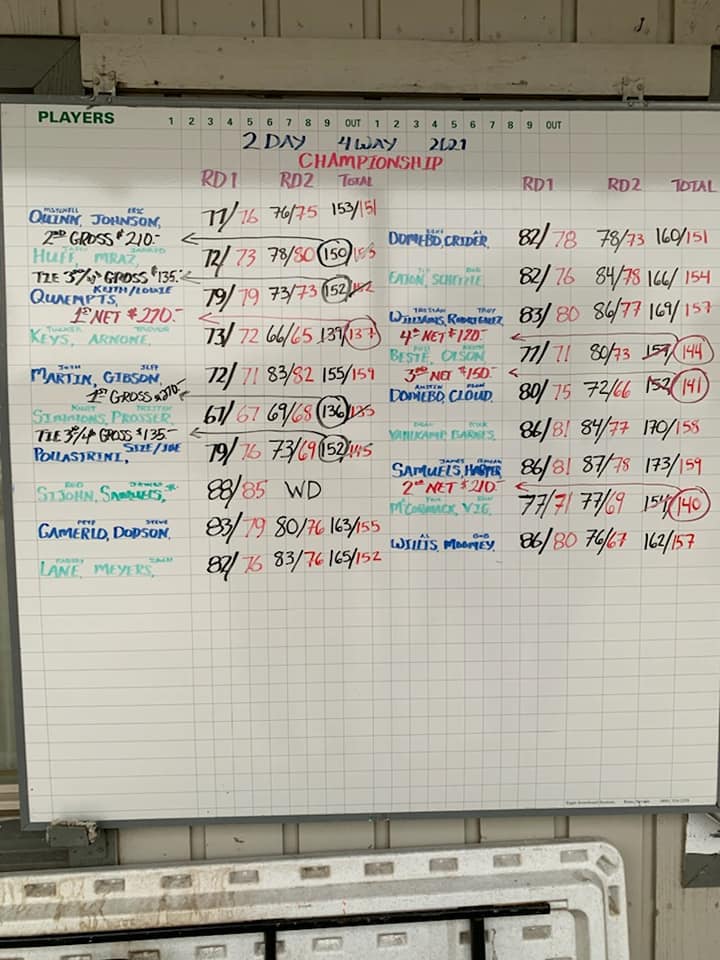 PLAYERS 1 2 3 4 5 6 7 8 9 OUT 1 2 3 4 5 6 7 8 9 OUT
2 DAY 4 WAY 2021
CHAMPIONSHIP
RD1 RD2 TOTAL
MITCHELL ERIC
QUINN, JOHNSON, 77/76 76/75 153/151
2ND GROSS $210.-
HUFF, MRAZ, 72/73 78/80 150/153
TIE 3RD/4TH GROSS $135.-
KEITH/LOUIE
QUAEMPTS, 79/79 73/73 152/152
1ST NET $270.-
TUCKER TREVOR
KEYS, ARNONE, 73/72 66/65 139/137
JOSH JEFF
MARTIN, GIBSON, 72/71 83/82 155/159
1ST GROSS $270.-
SIMMONS, PROSSER 67/67 69/68 136/135
TIE 3RD/4 GROSS $135.-
POLLASTRINI, 79/76 73/69 152/145
ST JOHN, SAMUELS, JR. 88/85 WD
PETE STEVE
GAMERLD, DODSON, 83/79 80/76 163/155
LANE, MEYERS, 82/76 83/76 165/152
RD1 RD2 TOTAL
AL
DOMEBO, CRIDER, 82/78 78/73 160/151
BOB
EATON, 82/76 84/78 166/154
TRISTIAN TROY
WILLIAMS, RODRIGUEZ, 83/80 86/77 169/157
4TH NET $120.-
BESTE, OLSON 77/71 80/73 157/144
3RD NET $150.-
AUSTIN
DOMEBO, CLOUD, 80/75 72/66 152/141
VANKAMP, BARNES, 86/81 84/77 170/158
JAMES
SAMUELS, HARPER 86/81 87/78 173/159
2ND NET $210.-
MCCORMACK, VIG, 77/71 77/69 154/140
AL BOB
WILLIS, MOOMEY, 86/80 76/67 162/157